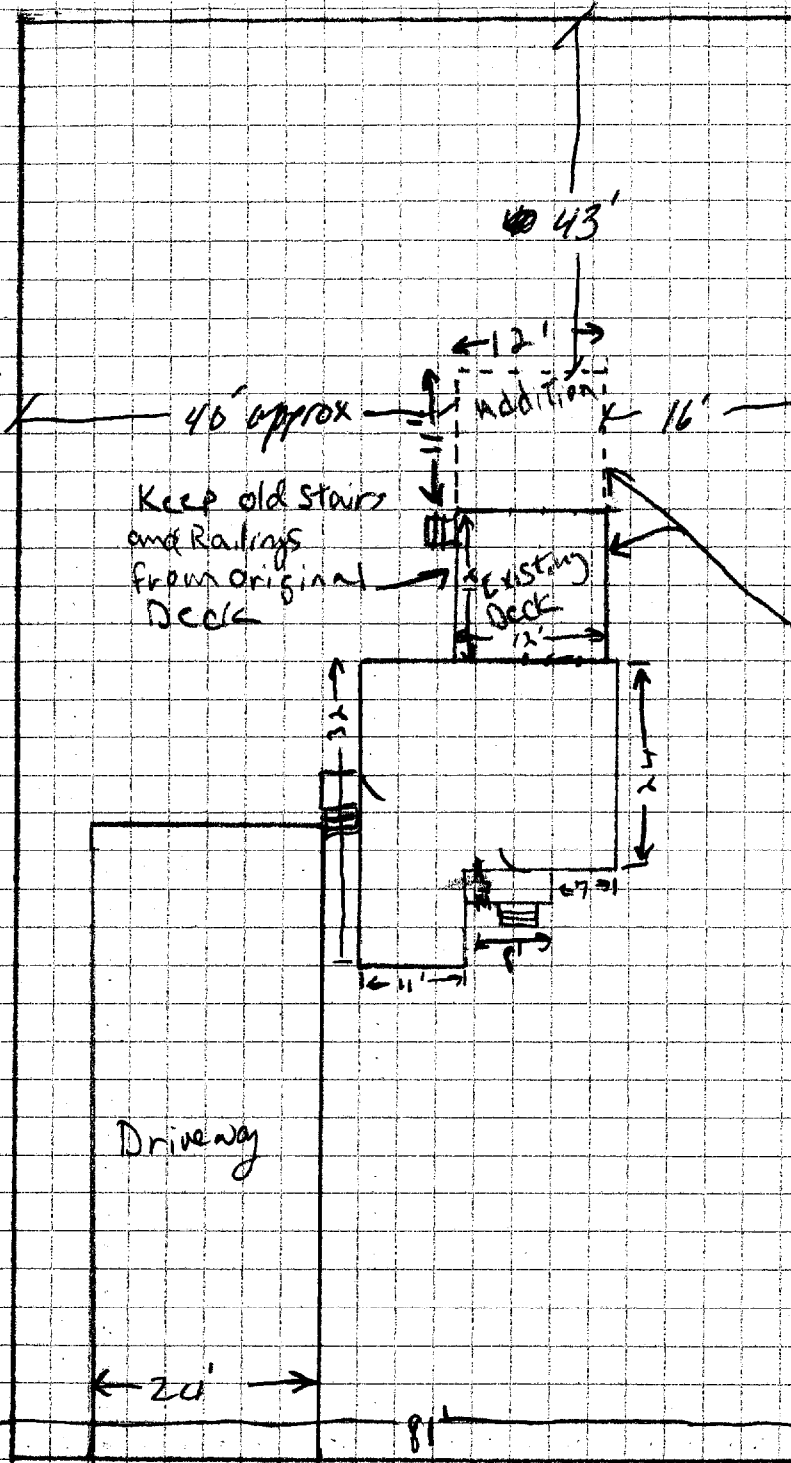 43'
12'
Addition
40' approx
16'
11'
Keep old Stairs
and Railings
from original
Deck
Existing
Deck
12'
32
24
7
8'
11'
Driveway
20'
81'